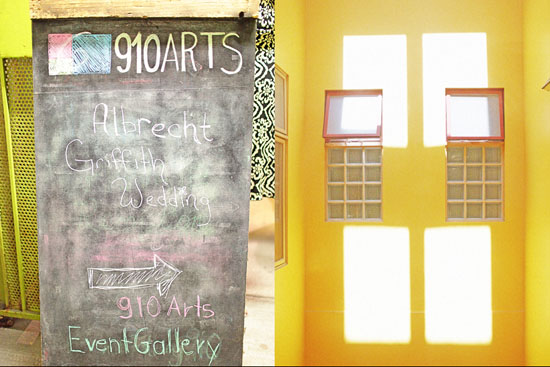 910ARTS
Albrecht
Griffith
Wedding
910 Arts
EventGallery